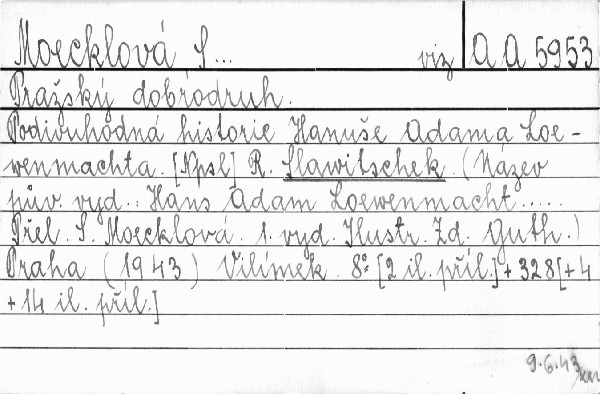 Moecklová S... viz AA 5953
Pražský dobrodruh.
Podivuhodná historie Hanuše Adama Loe-
wenmachta. [Npsl] R. Slawitschek. (Název
pův. vyd.: Hans Adam Loewenmacht.....
Přel. S. Moecklová. 1. vyd. Ilustr. Zd. Guth.)
Praha (1943) Vilímek. 8° [2 il. příl.] + 328 [+4
+ 14 il. příl.]
9.6.43